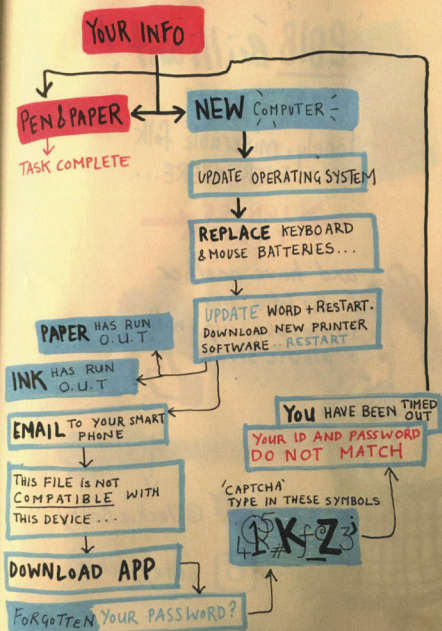 YOUR INFO
PEN & PAPER
TASK COMPLETE
NEW COMPUTER
UPDATE OPERATING SYSTEM
REPLACE KEYBOARD
& MOUSE BATTERIES...
UPDATE WORD + RESTART.
DOWNLOAD NEW PRINTER
SOFTWARE.. RESTART
PAPER HAS RUN
O.U.T
INK HAS RUN
O.U.T
EMAIL TO YOUR SMART
PHONE
THIS FILE iS NOT
COMPATIBLE WITH
THIS DEVICE...
DOWNLOAD APP
FORGOTTEN YOUR PASSWORD?
'CAPTCHA'
TYPE IN THESE SYMBOLS
YOU HAVE BEEN TIMED
OUT
YOUR ID AND PASSWORD
DO NOT MATCH